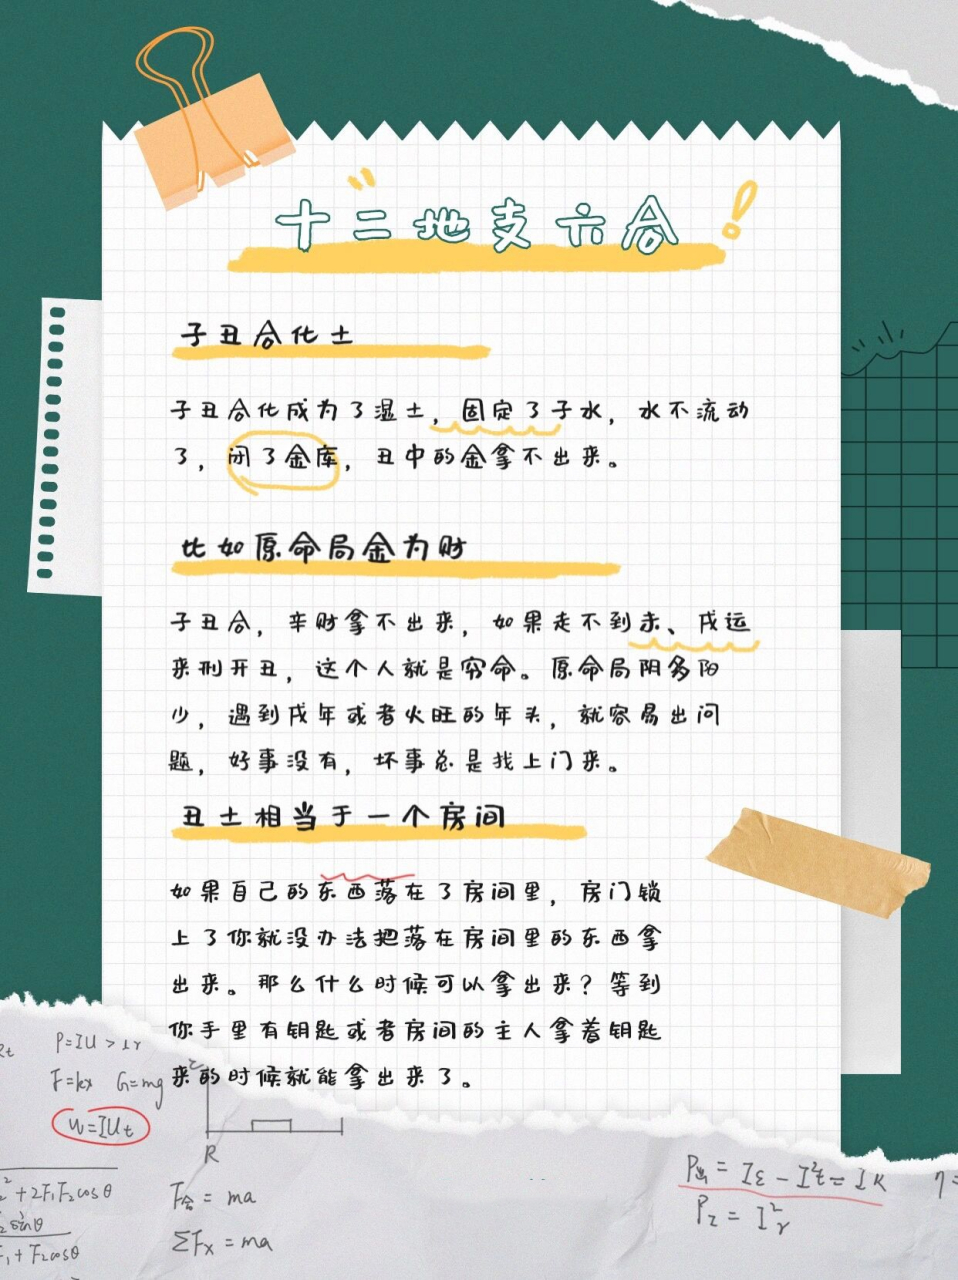 十二地支六合!
子丑合化土
子丑合化成为了湿土,固定了子水,水不流动
了,闭了金库,丑中的金拿不出来。
比如原命局金为财
子丑合,辛财拿不出来,如果走不到未、戌运
来刑开丑,这个人就是穷命。原命局阴多阳
少,遇到戌年或者火旺的年头,就容易出问
题,好事没有,坏事总是找上门来。
丑土相当于一个房间
如果自己的东西落在了房间里,房门锁
上了你就没办法把落在房间里的东西拿
出来。那么什么时候可以拿出来?等到
你手里有钥匙或者房间的主人拿着钥匙
来的时候就能拿出来了。
P=IU>
F=kx G=mg
W=IUt
R
+2F₁F₂cosθ
F合=ma
₂sinθ
F₁+F₂cosθ
ΣFx=ma
P出=Iε-I²
P₂=I²r